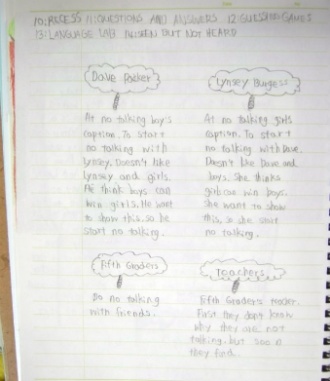 10: RECESS 11: QUESTIONS AND ANSWERS 12: GUESSING GAMES
13: LANGUAGE LAB BUT NOT HEARD
Dave Packer
At no talking boy's
caption. To start
no talking with
Lynsey. Doesn't like
Lynsey and girls.
He think boys can
win girls. He want
to show this, so he
start no talking.
Lynsey Burgess
At no talking girls
caption. To start
no talking with Dave.
Doesn't like Dave and
boys. She thinks
girls can win boys.
She want to show
this, so she start
no talking.
Fifth Graders
Do no talking
with friends.
Teachers
Fifth Graders teacher.
First they don't know
why they are not
talking. but soon
they find.